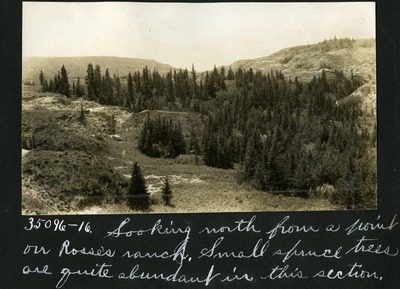 35096-16. Looking north from a point
on Rosses ranch. Small spruce trees
are quite abundant in this section.